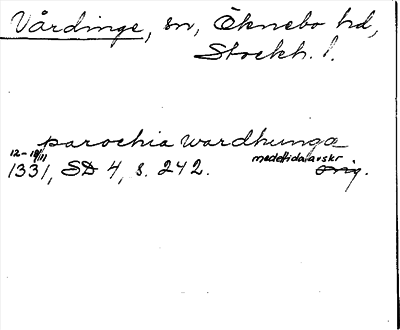 Vårdinge, sn, Öknebo hd,
Stockh. l.
parochia wardhunga
12-18/11 medeltidaavskr
1331, SD 4, s. 242. orig.